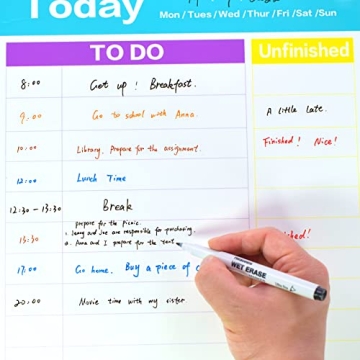 Today
Mon / Tues / Wed / Thur / Fri / Sat / Sun
TO DO
Unfinished
8:00 Get up! Breakfast.
9:00 Go to school with Anna.
A little late.
10:00 Library. Prepare for the assignment.
Finished! Nice!
12:00 Lunch Time
12:30 - 13:30 Break
prepare for the picnic.
and are responsible for purchasing.
13:30
Anna and I prepare for the
17:00 Go home. Buy a piece of
20:00 Movie time with my sister
WET ERASE